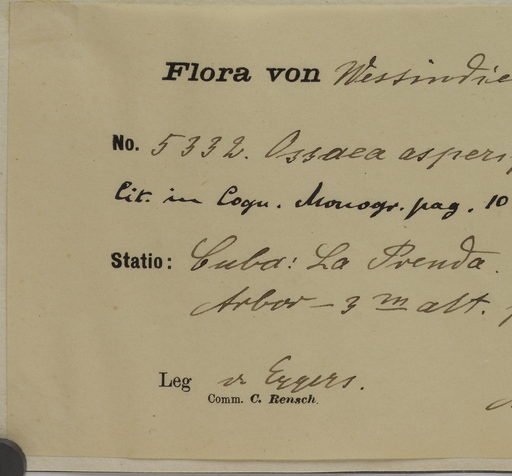 Flora von Westindie
No. 5332. Ossaea asper
Cit. in Cogn. Monogr. pag. 10
Statio: Cuba: La Prenda.
Arbor – 3 m alt.
Leg v Eggers.
Comm. C. Rensch.